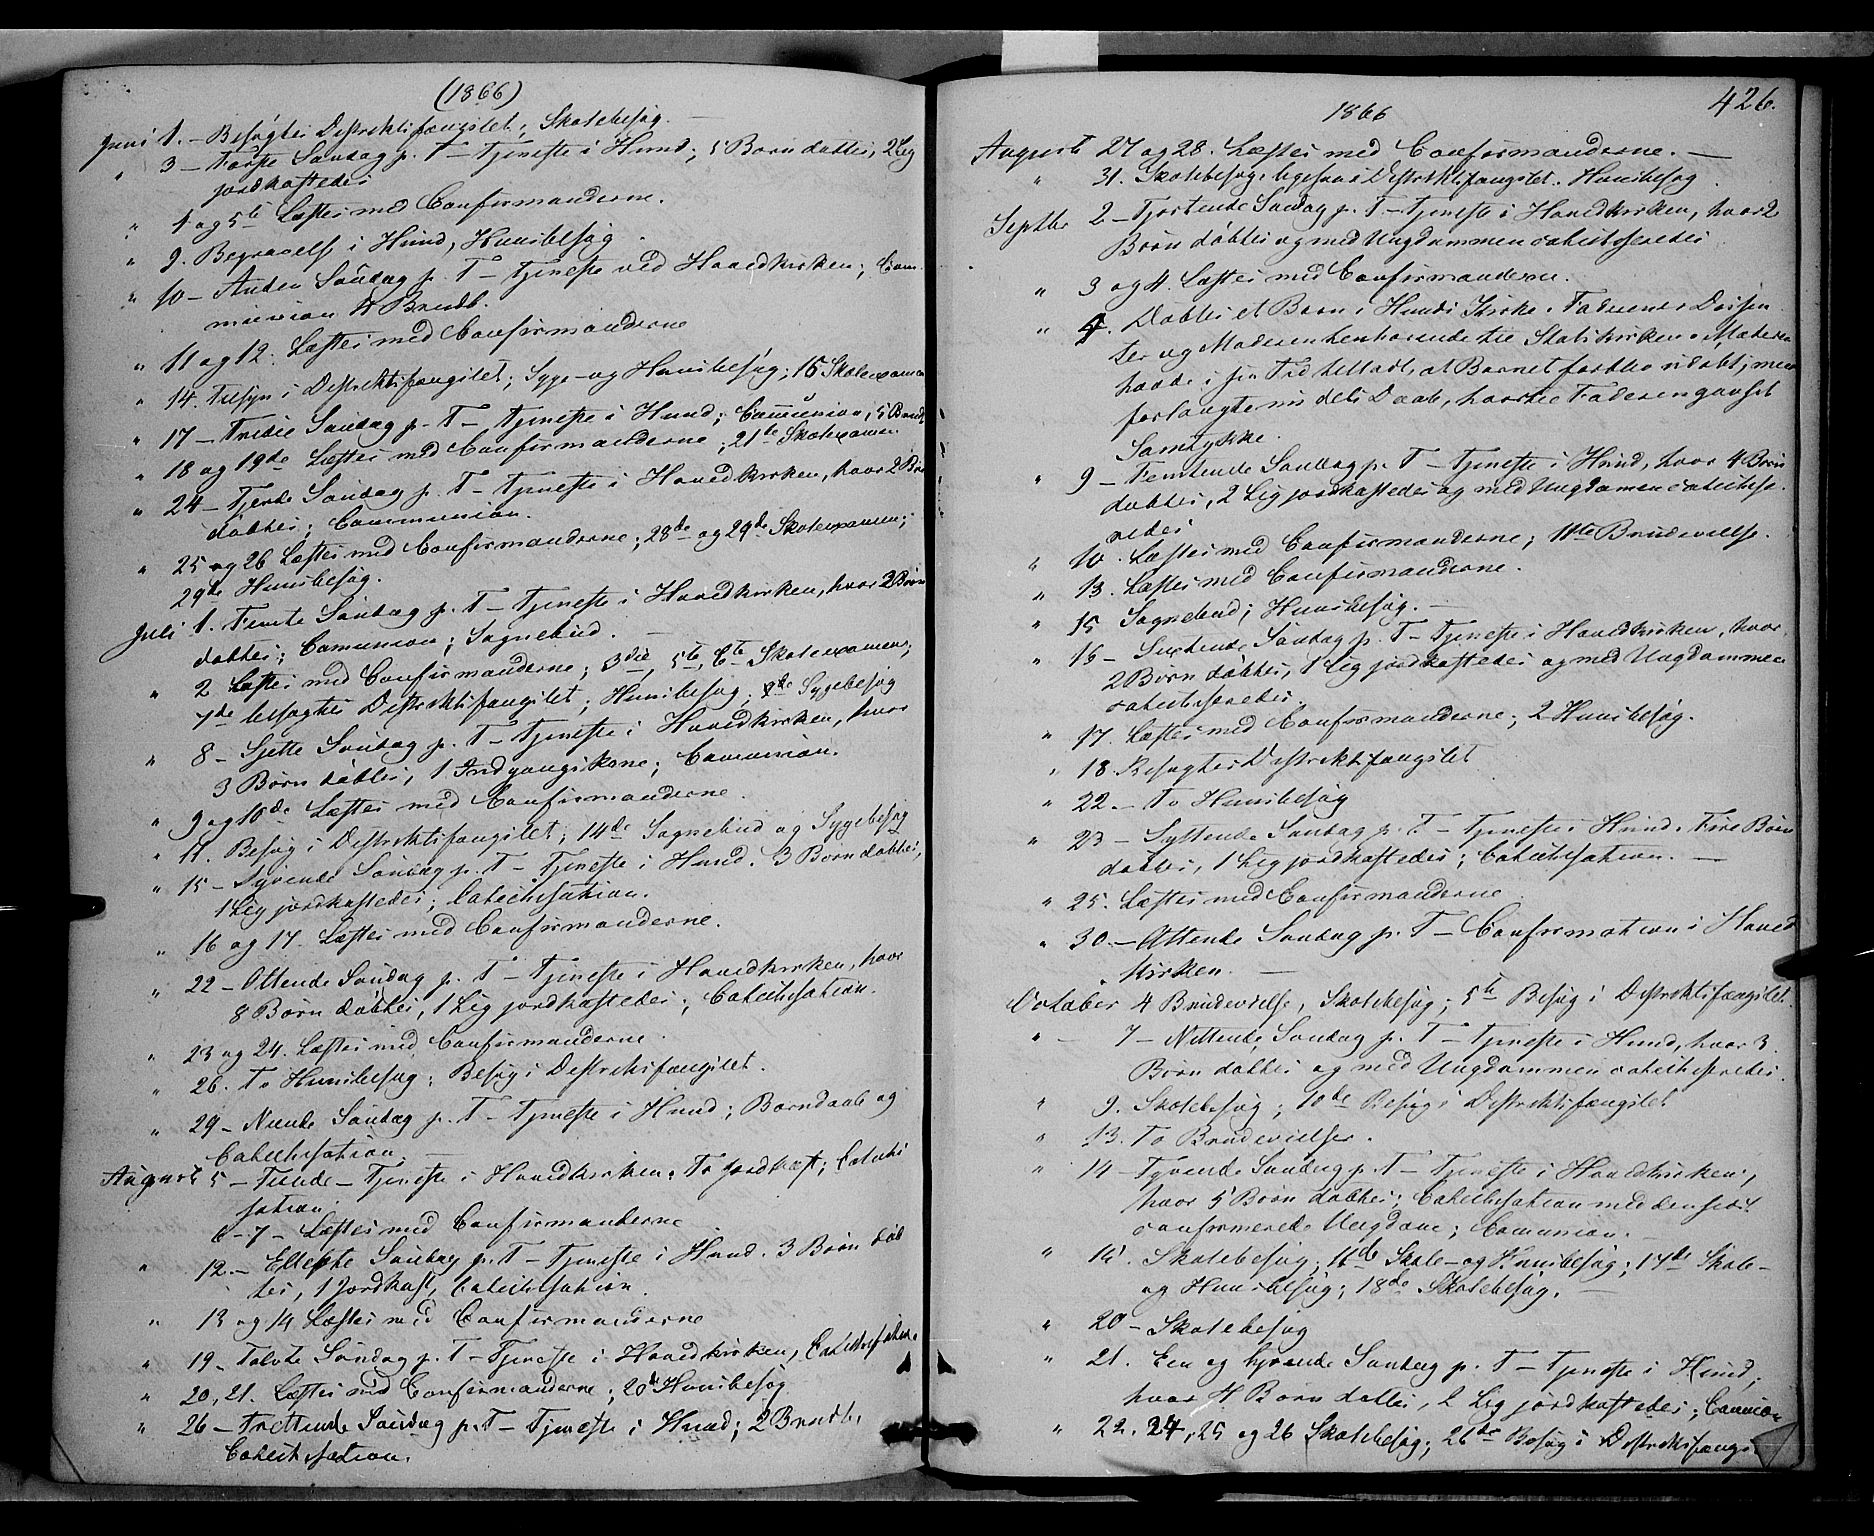 (1866)
Juni 1. – Besøgtes Distriktsfængslet; Skolebesøg.
" 3 – Første Søndag p. T – Tjeneste i Hund; 5 Børn døbtes, 2 Lig
jordkastedes
" 4 og 5te Læstes med Confirmanderne.
" 9. Begravelse i Hund, Huusbesøg.
" 10 – Anden Søndag p. T – Tjeneste ved Hovedkirken; Com-
munion 4 Brudb.
" 11 og 12. Læstes med Confirmanderne
" 14. Tilsyn i Distriktsfængslet; Syge- og Huusbesøg; 15 Skoleexamen
" 17 – Tredie Søndag p. T – Tjeneste i Hund; Communion, 5 Brudb.
" 18 og 19de Læstes med Confirmanderne; 21te Skoleexamen
" 24 – Fjerde Søndag p. T – Tjeneste i Hovedkirken, hvor 2 Børn
døbtes; Communion.
" 25 og 26 Læstes med Confirmanderne; 28de og 29de Skoleexamen;
29de Huusbesøg.
Juli 1. Femte Søndag p. T – Tjeneste i Hovedkirken, hvor 2 Børn
døbtes; Communion; Sognebud.
" 2 Læstes med Confirmanderne; 3die, 5te, 6te Skoleexamen;
7de besøgtes Distriktsfængslet; Huusbesøg; Sygebesøg
" 8 – Sjette Søndag p. T – Tjeneste i Hovedkirken, hvor
3 Børn døbtes, 1 Indgangskone; Communion.
" 9 og 10de Læstes med Confirmanderne.
" 11. Besøg i Distriktsfængslet; 14de Sognebud og Sygebesøg
" 15 – Syvende Søndag p. T – Tjeneste i Hund. 3 Børn døbtes,
1 Lig jordkastedes; Catechisation.
" 16 og 17. Læstes med Confirmanderne.
" 22 – Ottende Søndag p. T – Tjeneste i Hovedkirken, hvor
8 Børn døbtes, 1 Lig jordkastedes; Catechisation.
" 23 og 24. Læstes med Confirmanderne.
" 26. To Huusbesøg; Besøg i Distriktsfængslet.
" 29 – Niende Søndag p. T – Tjeneste i Hund; Barndaab og
Catechisation. –
August 5 – Tiende – Tjeneste i Hovedkirken. To Jordkast; Catechi
sation
6 – 7 – Læstes med Confirmanderne
" 12. – Ellefte Søndag p. T – Tjeneste i Hund. 3 Børn døb
tes, 1 Jordkast, Catechisation.
" 13 og 14 Læstes med Confirmanderne
" 19 – Tolvte Søndag p. T – Tjeneste i Hovedkirken, Catechisation.
" 20, 21. Læstes med Confirmanderne; 20de Huusbesøg.
" 26 – Trettende Søndag p. T – Tjeneste i Hund; 2 Brudb.
Catechisation.
426.
1866
August 27 og 28. Læstes med Confirmanderne. –
" 31. Skolebesøg, ligesaa i Distriktsfængslet. Huusbesøg.
Septbr 2 – Fjortende Søndag p. T – Tjeneste i Hovedkirken, hvor 2
Børn døbtes og med Ungdommen catechiseredes.
" 3 og 4. Læstes med Confirmanderne.
" Døbtes et Barn i Hunds Kirke. Faderen er Dissen
ter og Moderen henhørende til Statskirken. Moderen
havde i sin Tid tilladt, at Barnet forblev udøbt, men
forlangte nu dets Daab, hvortil Faderen gav sit
Samtykke.
" 9 – Femtende Søndag p. T – Tjeneste i Hund, hvor 4 Børn
døbtes, 2 Lig jordkastedes og med Ungdommen catechise-
redes
" 10. Læstes med Confirmanderne; 11te Brudevielse.
" 13. Læstes med Confirmanderne.
" 15 Sognebud; Huusbesøg. –
" 16 – Sextende Søndag p. T – Tjeneste i Hovedkirken, hvor
2 Børn døbtes, 1 Lig jordkastedes og med Ungdommen
catechiseredes.
" 17. Læstes med Confirmanderne; 2 Huusbesøg.
" 18. Besøgtes Distriktsfængslet
" 22. – To Huusbesøg
" 23 – Syttende Søndag p. T – Tjeneste i Hund. Fire Børn
døbtes, 1 Lig jordkastedes; Catechisation. –
" 25. Læstes med Confirmanderne
" 30. – Attende Søndag p. T – Confirmation i Hoved
kirken. –
October 4 Brudevielse, Skolebesøg; 5te Besøg i Distriktsfængslet.
" – 7 – Nittende Søndag p. T – Tjeneste i Hund, hvor 3
Børn døbtes og med Ungdommen catechiseredes.
" 9. Skolebesøg; 10de Besøg i Distriktsfængslet
" 13. To Brudevielser.
" 14 – Tyvende Søndag p. T – Tjeneste i Hovedkirken,
hvor 5 Børn døbtes; Catechisation med den sidst
confirmerede Ungdom; Communion. –
" 15. Skolebesøg; 16de Skole- og Huusbesøg; 17de Skole-
og Huusbesøg; 18de Skolebesøg. –
" 20 – Skolebesøg
" 21. Een og tyvende Søndag p. T – Tjeneste i Hund,
hvor 4 Børn døbtes, 2 Lig jordkastedes; Communion
" 22. 24, 25 og 26 Skolebesøg; 26de Besøg i Distriktsfængs